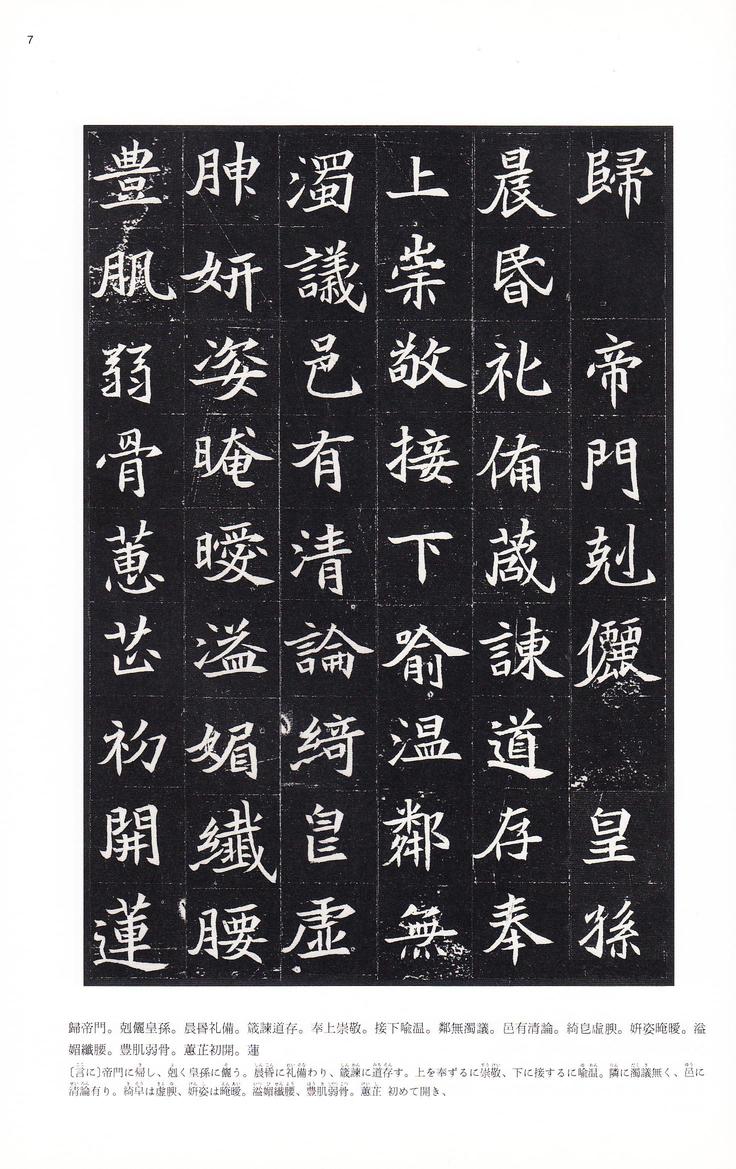 7
歸 帝門剋儷 皇孫
晨昬礼備葴諫道存奉
上崇敬接下喻温鄰無
濁議邑有清論綺皀虛
腗妍姿晻曖溢媚纖腰
豊肌弱骨蕙芷初開蓮
歸帝門。剋儷皇孫。晨昬礼備。箴諫道存。奉上崇敬。接下喩温。鄰無濁議。邑有清論。綺皀虚腴。妍姿晻曖。溢
媚纖腰。豊肌弱骨。蕙芷初開。蓮
〔言に〕帝門に帰し、剋く皇孫に儷う。晨昬に礼備わり、箴諫に道存す。上を奉ずるに崇敬、下に接するに喩温。隣に濁議無く、邑に
清論有り。綺皁は虚腴、妍姿は晻曖。溢媚纖腰、豊肌弱骨。蕙芷 初めて開き、